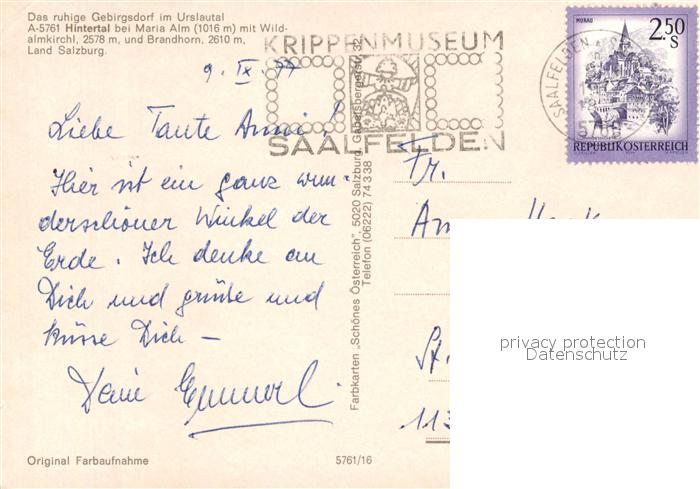 Das ruhige Gebirgsdorf im Urslautal
A-5761 Hintertal bei Maria Alm (1016 m) mit Wild-
almkirchl, 2578 m, und Brandhorn, 2610 m,
Land Salzburg.
KRIPPENMUSEUM
SAALFELDEN
SAALFELDEN
5760
MURAU
2.50
S
REPUBLIK ÖSTERREICH
9. IX. 77
Liebe Tante Anni!
Hier ist ein ganz wun-
derschöner Winkel der
Erde. Ich denke an
Dich und grüße und
küsse Dich –
Deine
Fr.
St.
113
Farbkarten „Schönes Österreich", 5020 Salzburg, Gabelsbergerstr. 32
Telefon (06222) 74 3 38
privacy protection
Datenschutz
Original Farbaufnahme
5761/16